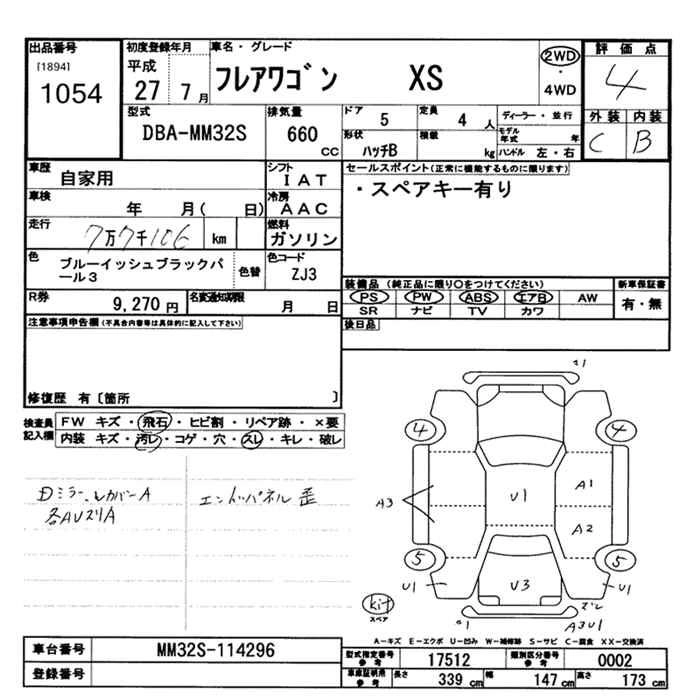 出品番号
[1894]
1054
初度登録年月
平成
27 7月
車名・グレード
フレアワゴン XS
2WD
・
4WD
評価点
4
外装 内装
C B
型式
DBA-MM32S
排気量
660
cc
ドア 5
定員 4 人
ディーラー・並行
形状
ハッチB
積載
kg
モデル年式 年
ハンドル 左・右
車歴
自家用
シフト
IAT
車検
年 月( 日)
冷房
AAC
走行
7万7千106 km
燃料
ガソリン
色
ブルーイッシュブラックパール3
色替
色コード
ZJ3
R券
9,270 円
名変通知期限
月 日
セールスポイント(正常に機能するものに限ります)
・スペアキー有り
装備品 (純正品に限り〇をつけてください)
PS PW ABS エアB AW
SR ナビ TV カワ
新車保証書
有・無
後日品
注意事項申告欄(不具合内容等は具体的に記入して下さい)
修復歴 有〔箇所 〕
検査員記入欄
FW キズ・飛石・ヒビ割・リペア跡・×要
内装 キズ・汚レ・コゲ・穴・スレ・キレ・破レ
Dミラーカバー A
各AUズリA
エンドパネル歪
4 4
A3 U1 A1
A2
5 5
U1 U3 U1
A3U1
kit
スペア
A-キズ E-エクボ U-凹み W-補修跡 S-サビ C-腐食 XX-交換済
車台番号
MM32S-114296
登録番号
型式指定番号参考
17512
類別区分番号参考
0002
車庫証明用参考
長さ 339 cm
幅 147 cm
高さ 173 cm